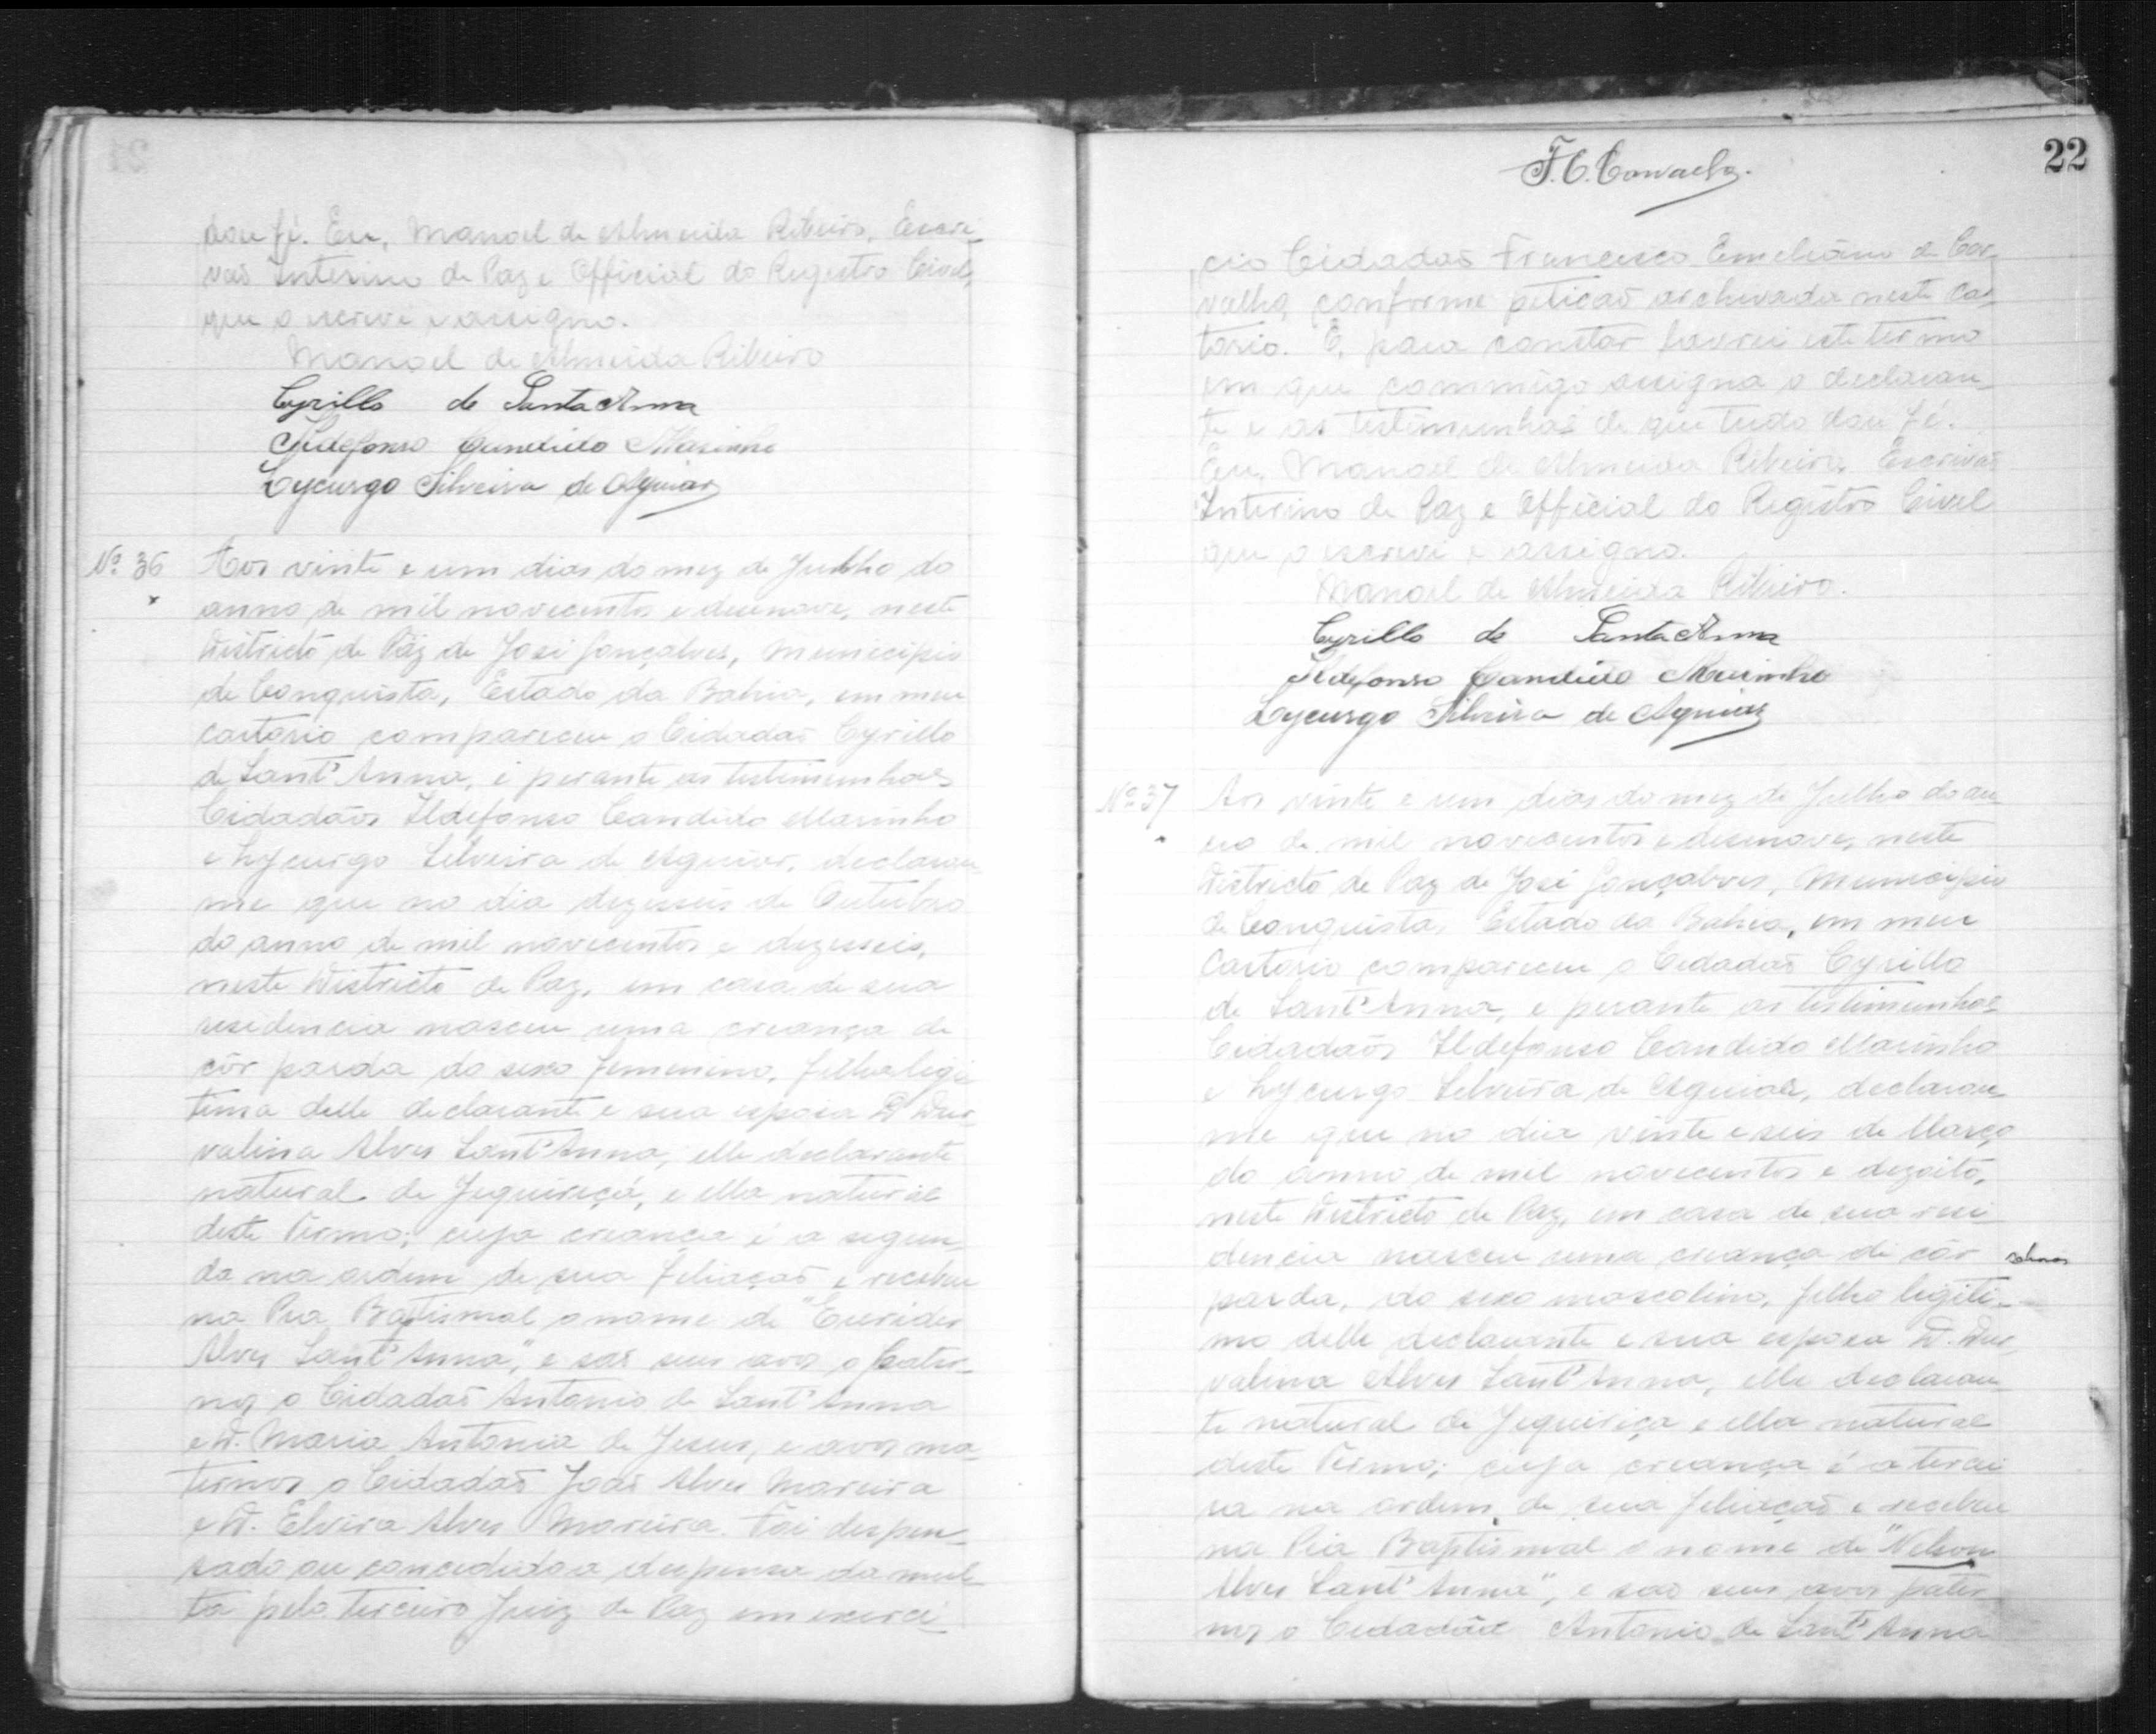 dou fé. Eu, Manoel de Almeida Ribeiro, Escri-
vaõ Interino de Paz e Official do Registro Civel,
que o escrevi e assigno.
Manoel de Almeida Ribeiro
Cyrillo de Santa Anna
Ildefonso Candido Marinho
Lycurgo Silveira de Aguiar
Nº 36 Aos vinte e um dias do mez de Julho do
anno de mil novecentos e desenove, neste
Districto de Paz de José Gonçalves, Municipio
de Conquista, Estado da Bahia, em meu
cartorio compareceu o Cidadaõ Cyrillo
de Sant'Anna, e perante as testimunhas
Cidadaõs Ildefonso Candido Marinho
e Lycurgo Silveira de Aguiar, declarou-
me que no dia dezesseis de Outubro
do anno de mil novecentos e dezesseis,
neste Districto de Paz, em casa de sua
residencia nasceu uma creança de
côr parda do sexo femenino, filha legi-
tima delle declarante e sua esposa D. Dur-
valina Alves Sant'Anna, elle declarante
natural de Jequiriçá, e ella natural
deste Termo; cuja creança é a segun-
da na ordem de sua filiaçaõ e recebeu
na Pia Baptismal o nome de "Eurides
Alves Sant'Anna", e saõ seus avos, o pater-
nos o Cidadaõ Antonio de Sant'Anna
e D. Maria Antonia de Jesus, e avos ma-
ternos o Cidadaõ Joaõ Alves Moreira
e D. Elvira Alves Moreira. Foi dispen-
sado ou concedida a dispensa da mul-
ta pelo Terceiro Juiz de Paz em exerci-
22
F. C. Carvalho.
cio Cidadaõ Francisco Emeliano de Car-
valho, conforme petiçaõ archivada neste Car-
torio. E, para constar lavrei este termo
em que commigo assigna o declaran-
te e as testimunhas de que tudo dou fé.
Eu, Manoel de Almeida Ribeiro, Escrivaõ
Interino de Paz e Official do Registro Civel
que o escrevi e assigno.
Manoel de Almeida Ribeiro.
Cyrillo de Santa Anna
Ildefonso Candido Marinho
Lycurgo Silveira de Aguiar
Nº 37 Aos vinte e um dias do mez de Julho do an-
no de mil novecentos e desenove, neste
Districto de Paz de José Gonçalves, Municipio
de Conquista, Estado da Bahia, em meu
Cartorio compareceu o Cidadaõ Cyrillo
de Sant'Anna, e perante as testimunhas
Cidadaõs Ildefonso Candido Marinho
e Lycurgo Silveira de Aguiar, declarou-
me que no dia vinte e seis de Março
do anno de mil novecentos e dezoito,
neste Districto de Paz, em casa de sua resi-
dencia nasceu uma creança de côr
parda, do sexo mascolino, filho legiti-
mo delle declarante e sua esposa D. Dur-
valina Alves Sant'Anna, elle declaran-
te natural de Jequiriça e ella natural
deste Termo; cuja creança é a tercei-
ra na ordem de sua filiaçaõ e recebeu
na Pia Baptismal o nome de "Nelson
Alves Sant'Anna", e saõ seus avos pater-
nos o Cidadaõ Antonio de Sant'Anna